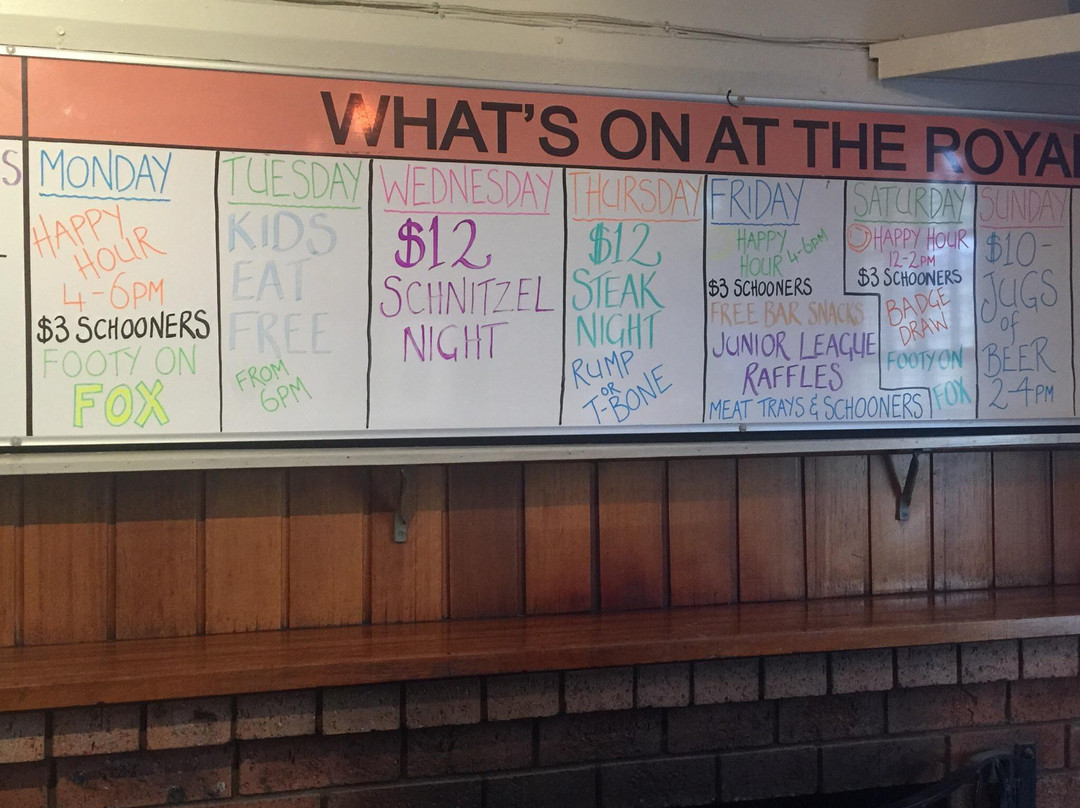 WHAT'S ON AT THE ROYA
S
MONDAY
HAPPY
HOUR
4-6PM
$3 SCHOONERS
FOOTY ON
FOX
TUESDAY
KIDS
EAT
FREE
FROM
6PM
WEDNESDAY
$12
SCHNITZEL
NIGHT
THURSDAY
$12
STEAK
NIGHT
RUMP
OR
T-BONE
FRIDAY
HAPPY
HOUR 4-6PM
$3 SCHOONERS
FREE BAR SNACKS
JUNIOR LEAGUE
RAFFLES
MEAT TRAYS & SCHOONERS
SATURDAY
HAPPY HOUR
12-2PM
$3 SCHOONERS
BADGE
DRAW
FOOTY ON
FOX
SUNDAY
$10-
JUGS
of
BEER
2-4PM